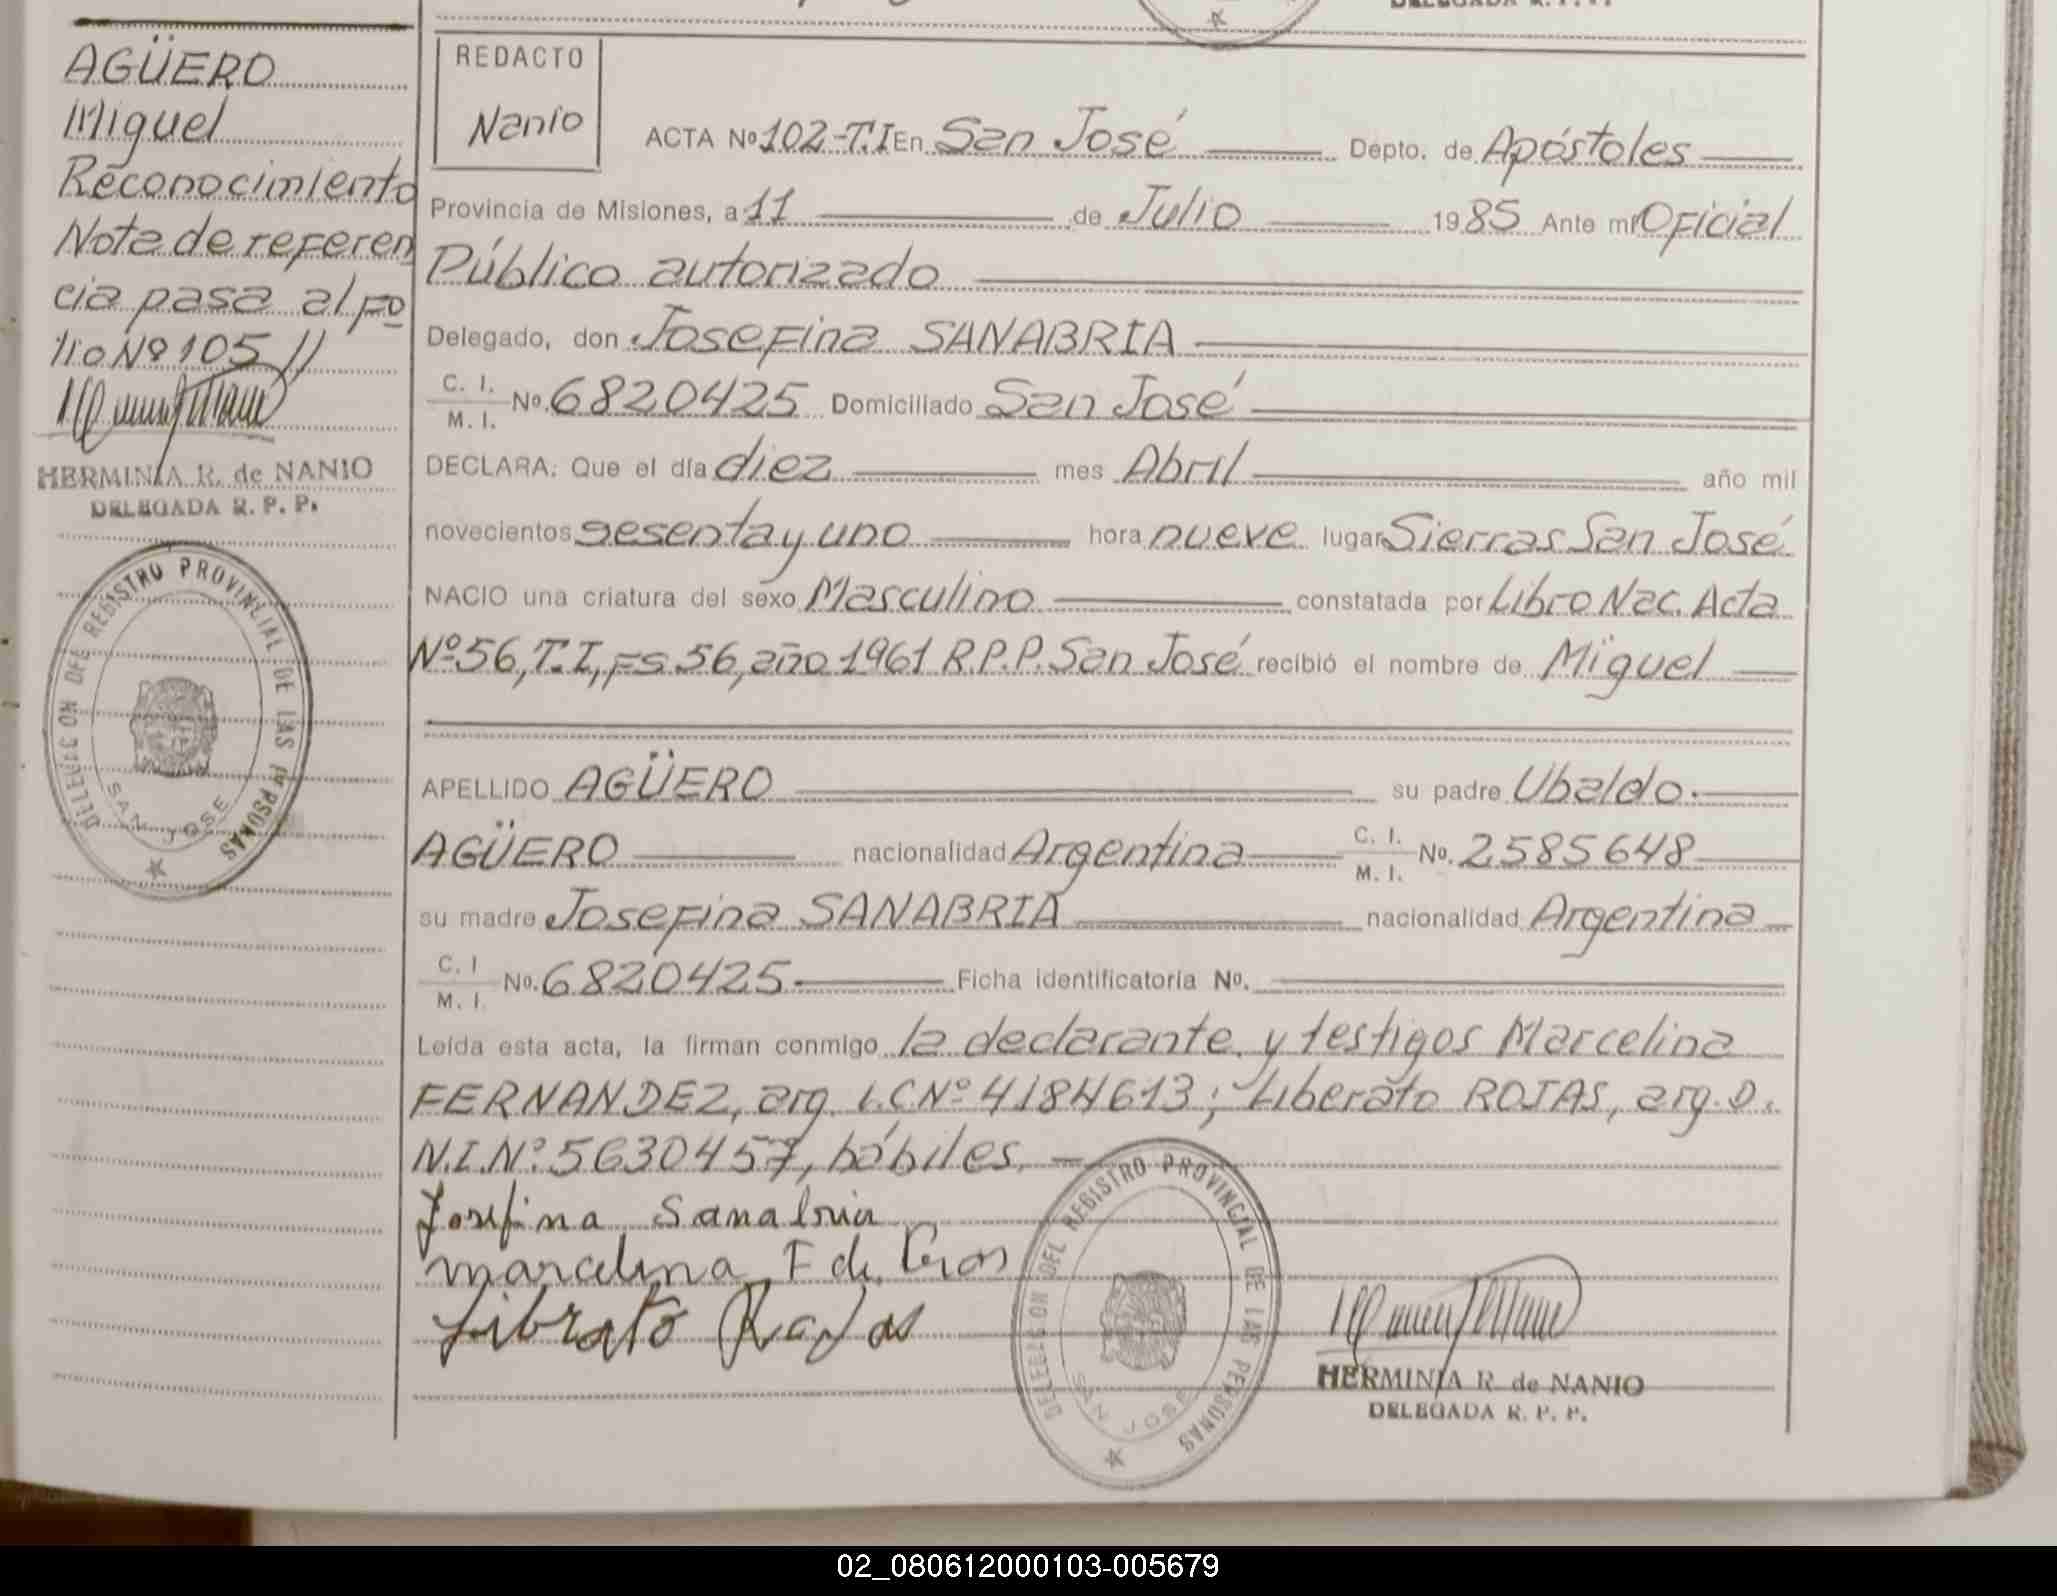 AGÜERO
Miguel
Reconocimiento
Nota de referen
cia pasa al fo
lio Nº 105 //
HERMINIA R. de NANIO
DELEGADA R. P. P.
DELEGACION DEL REGISTRO PROVINCIAL DE LAS PERSONAS
SAN JOSE
DELEGADA R. P. P.
REDACTO
Nanio
ACTA Nº 102-T.I En San José Depto. de Apóstoles
Provincia de Misiones, a 11 de Julio 1985 Ante mí Oficial
Público autorizado
Delegado, don Josefina SANABRIA
C. I.
M. I. Nº. 6820425 Domiciliado San José
DECLARA: Que el día diez mes Abril año mil
novecientos sesenta y uno hora nueve lugar Sierras San José
NACIO una criatura del sexo Masculino constatada por Libro Nac. Acta
Nº 56, T.I, Fs 56, año 1961 R.P.P. San José recibió el nombre de Miguel
APELLIDO AGÜERO su padre Ubaldo.
AGÜERO nacionalidad Argentina C. I. M. I. Nº. 2585648
su madre Josefina SANABRIA nacionalidad Argentina
C. I
M. I. Nº. 6820425 Ficha identificatoria Nº.
Leída esta acta, la firman conmigo la declarante y testigos Marcelina
FERNANDEZ, arg. L.C Nº 4184613; Liberato ROJAS, arg. D.
N.I. Nº. 5630457, hábiles. —
Josefina Sanabria
marcelina F de
Librato Rojas
DELEGACION DEL REGISTRO PROVINCIAL DE LAS PERSONAS
SAN JOSE
HERMINIA R. de NANIO
DELEGADA R. P. P.
02_080612000103-005679